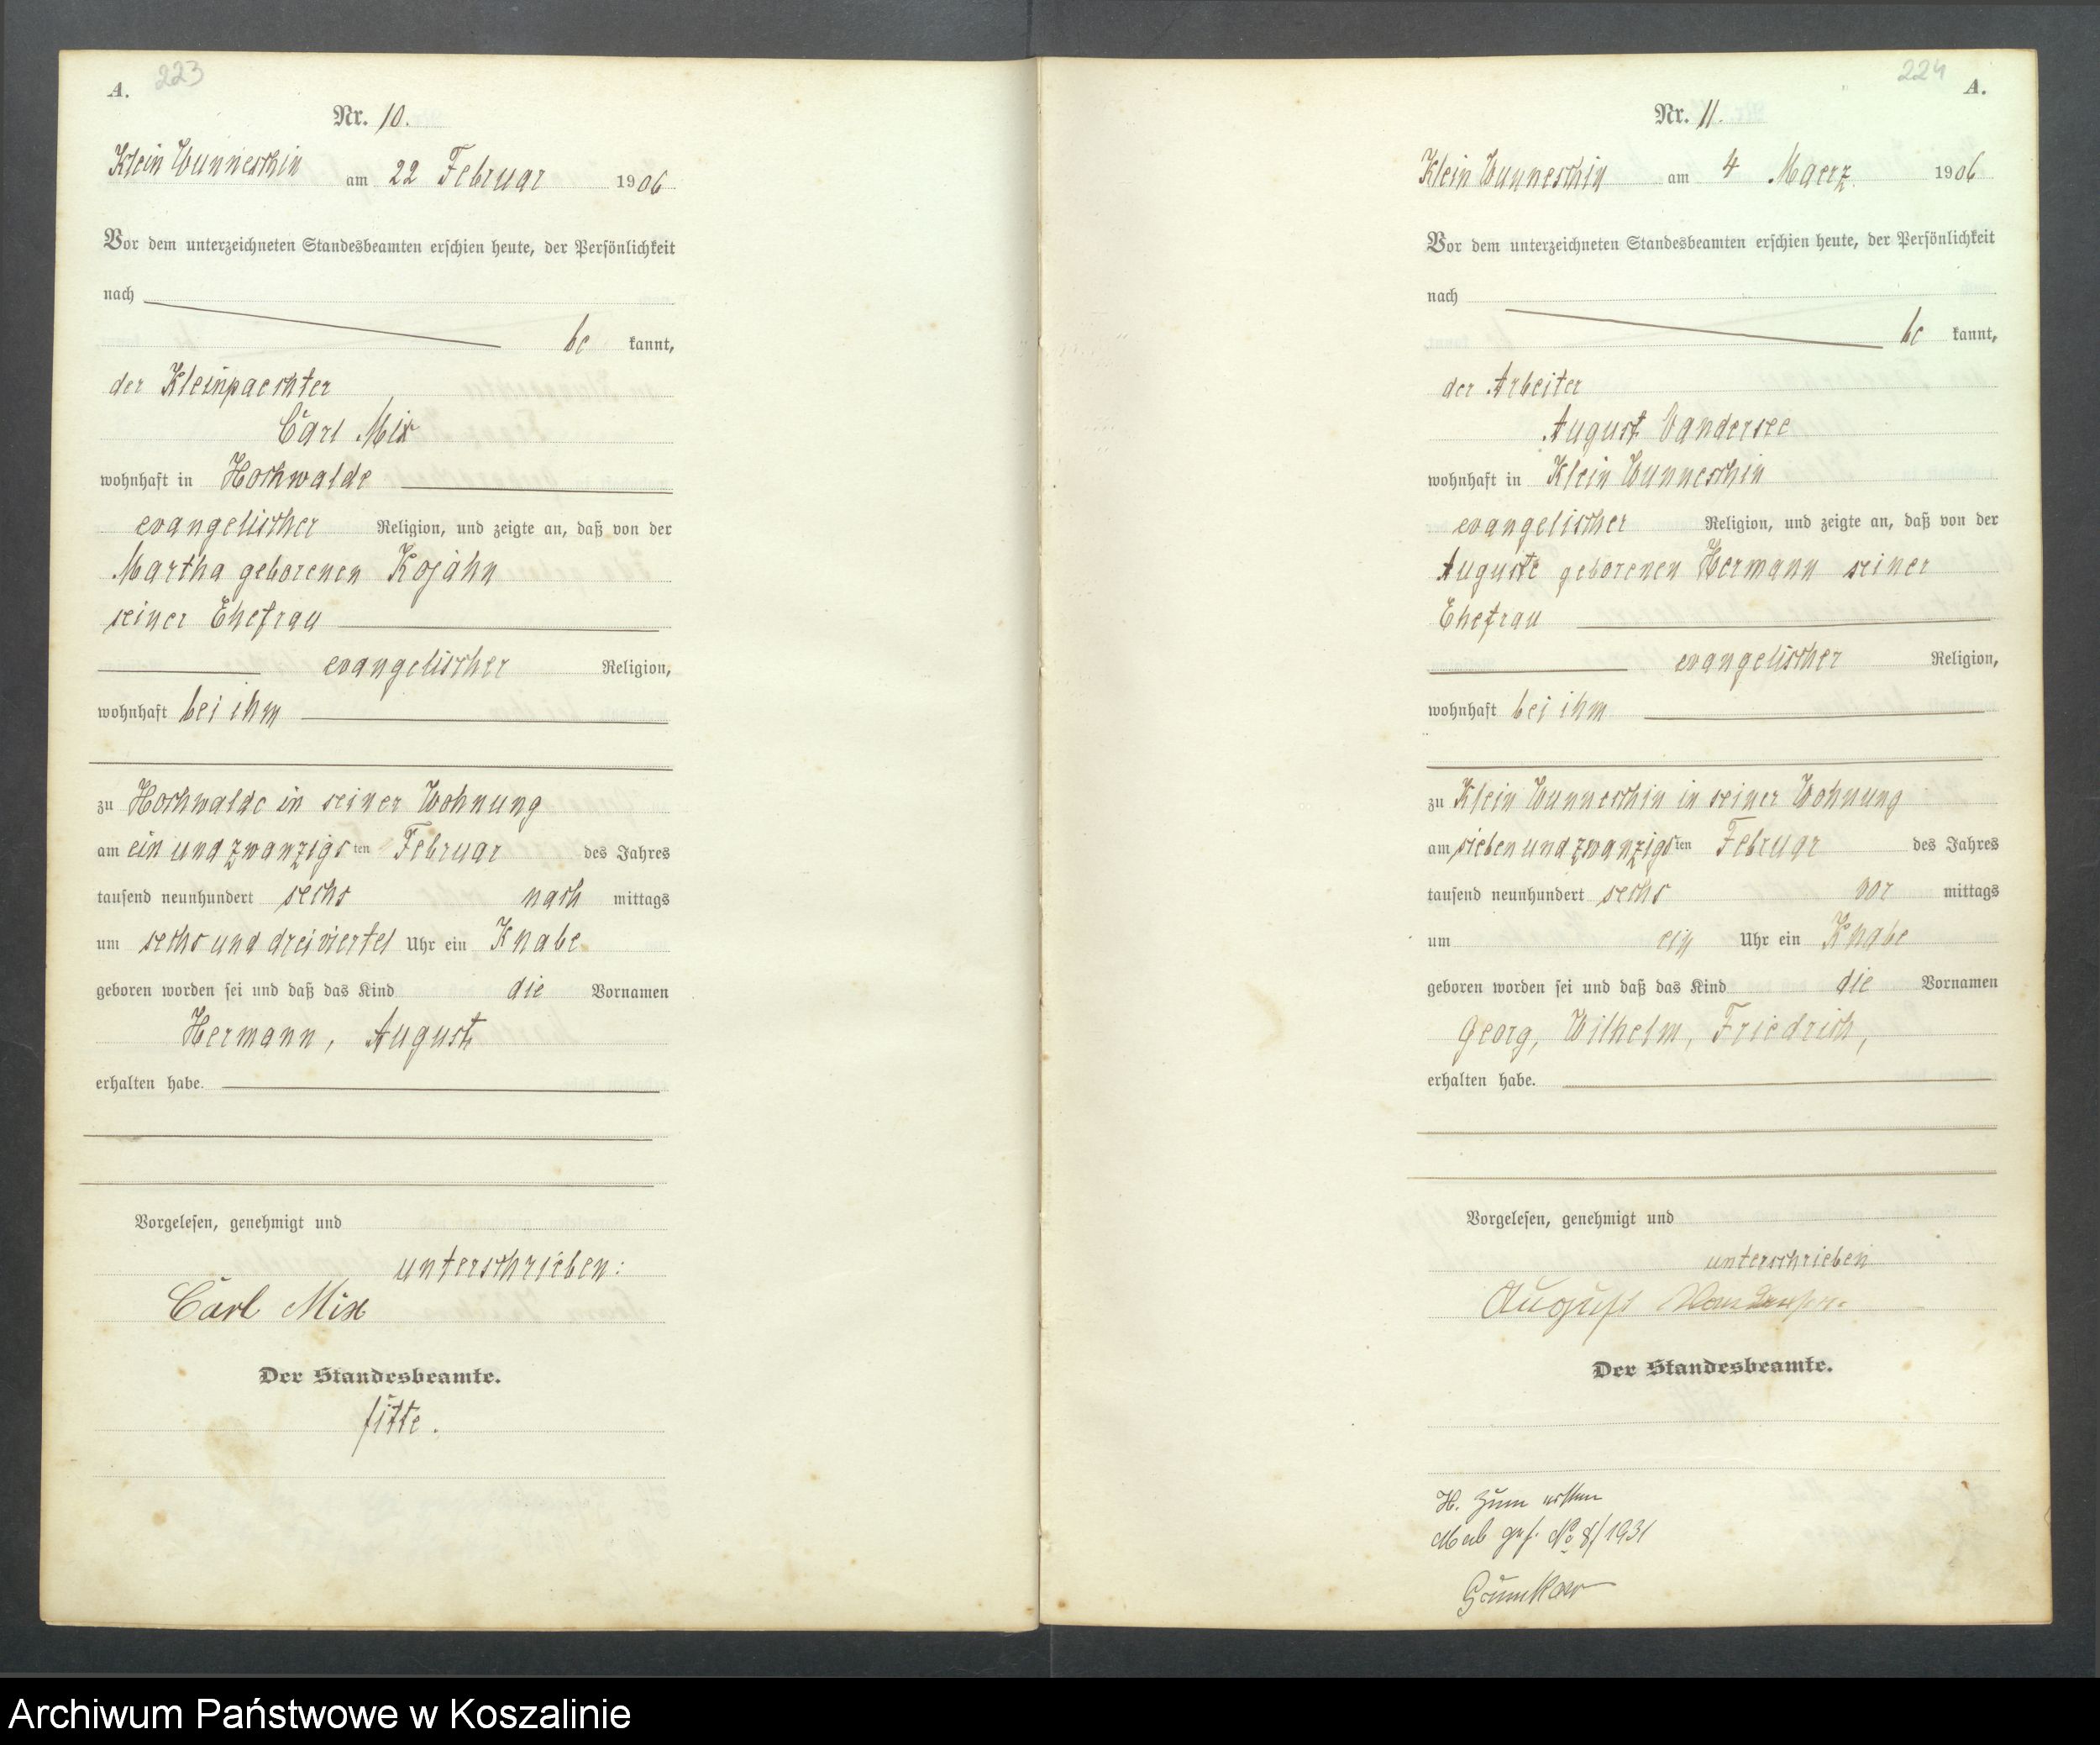 A.
223
Nr. 10.
Klein Wunneschin am 22 Februar 1906
Vor dem unterzeichneten Standesbeamten erschien heute, der Persönlichkeit
nach
be kannt,
der Kleinpaechter
Carl Mix
wohnhaft in Hochwalde
evangelischer Religion, und zeigte an, daß von der
Martha geborenen Kojahn
seiner Ehefrau
evangelischer Religion,
wohnhaft bei ihm
zu Hochwalde in seiner Wohnung
am ein und zwanzigsten Februar des Jahres
tausend neunhundert sechs nach mittags
um sechs und dreiviertel Uhr ein Knabe
geboren worden sei und daß das Kind die Vornamen
Hermann, August
erhalten habe.
Vorgelesen, genehmigt und
unterschrieben:
Carl Mix
Der Standesbeamte.
224
A.
Nr. 11.
Klein Wunneschin am 4 Maerz 1906
Vor dem unterzeichneten Standesbeamten erschien heute, der Persönlichkeit
nach
be kannt,
der Arbeiter
August Vandersee
wohnhaft in Klein Wunneschin
evangelischer Religion, und zeigte an, daß von der
Auguste geborenen Hermann seiner
Ehefrau
evangelischer Religion,
wohnhaft bei ihm
zu Klein Wunneschin in seiner Wohnung
am sieben und zwanzigsten Februar des Jahres
tausend neunhundert sechs vor mittags
um ein Uhr ein Knabe
geboren worden sei und daß das Kind die Vornamen
Georg, Wilhelm, Friedrich,
erhalten habe.
Vorgelesen, genehmigt und
unterschrieben
August Vandersee
Der Standesbeamte.
H. zum ersten
Mal No 8/1931
Archiwum Państwowe w Koszalinie